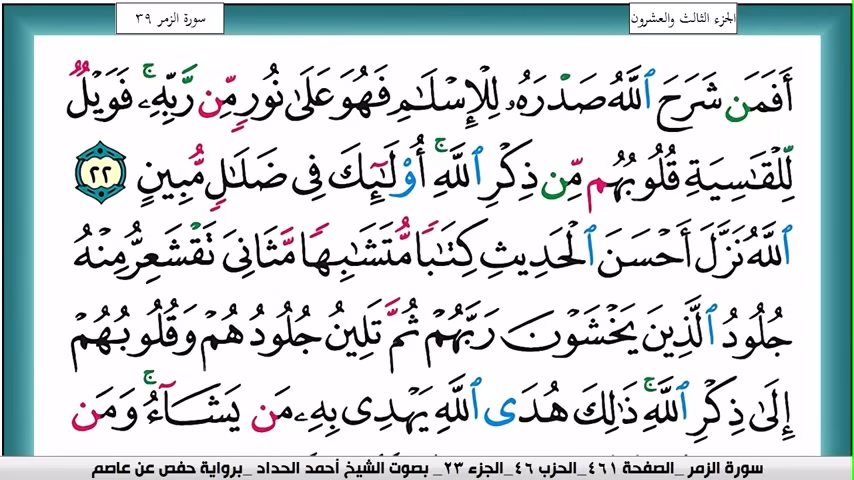 سورة الزمر ٣٩
الجزء الثالث والعشرون
أَفَمَن شَرَحَ ٱللَّهُ صَدْرَهُۥ لِلْإِسْلَـٰمِ فَهُوَ عَلَىٰ نُورٍ مِّن رَّبِّهِۦ ۚ فَوَيْلٌ
لِّلْقَـٰسِيَةِ قُلُوبُهُم مِّن ذِكْرِ ٱللَّهِ ۚ أُو۟لَـٰٓئِكَ فِى ضَلَـٰلٍ مُّبِينٍ ٢٢
ٱللَّهُ نَزَّلَ أَحْسَنَ ٱلْحَدِيثِ كِتَـٰبًا مُّتَشَـٰبِهًا مَّثَانِىَ تَقْشَعِرُّ مِنْهُ
جُلُودُ ٱلَّذِينَ يَخْشَوْنَ رَبَّهُمْ ثُمَّ تَلِينُ جُلُودُهُمْ وَقُلُوبُهُمْ
إِلَىٰ ذِكْرِ ٱللَّهِ ۚ ذَٰلِكَ هُدَى ٱللَّهِ يَهْدِى بِهِۦ مَن يَشَآءُ ۚ وَمَن
سورة الزمر _الصفحة ٤٦١_الحزب ٤٦_الجزء ٢٣_ بصوت الشيخ أحمد الحداد _برواية حفص عن عاصم